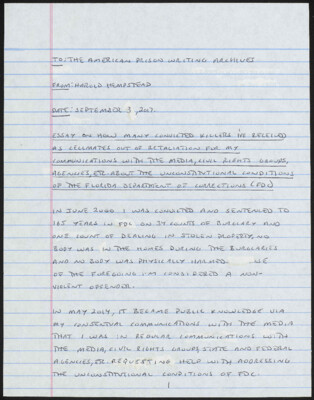 TO: THE AMERICAN PRISON WRITING ARCHIVES
FROM: HAROLD HEMPSTEAD
DATE: SEPTEMBER 3, 2017.
ESSAY ON HOW MANY CONVICTED KILLERS I RECEIVED
AS CELLMATES OUT OF RETALIATION FOR MY
COMMUNICATIONS WITH THE MEDIA, CIVIL RIGHTS GROUPS,
AGENCIES, ETC. ABOUT THE UNCONSTITUTIONAL CONDITIONS
OF THE FLORIDA DEPARTMENT OF CORRECTIONS (FDC)
IN JUNE 2000 I WAS CONVICTED AND SENTENCED TO
165 YEARS IN FDC ON 39 COUNTS OF BURGLARY AND
ONE COUNT OF DEALING IN STOLEN PROPERTY, NO
BODY WAS IN THE HOMES DURING THE BURGLARIES
AND NO BODY WAS PHYSICALLY HARMED.
OF THE FOREGOING I'M CONSIDERED A NON-
VIOLENT OFFENDER.
IN MAY 2014, IT BECAME PUBLIC KNOWLEDGE VIA
MY CONSENTUAL COMMUNICATIONS WITH THE MEDIA
THAT I WAS IN REGULAR COMMUNICATIONS WITH
THE MEDIA, CIVIL RIGHTS GROUPS, STATE AND FEDERAL
AGENCIES, ETC. REQUESTING HELP WITH ADDRESSING
THE UNCONSTITUTIONAL CONDITIONS OF FDC.
1